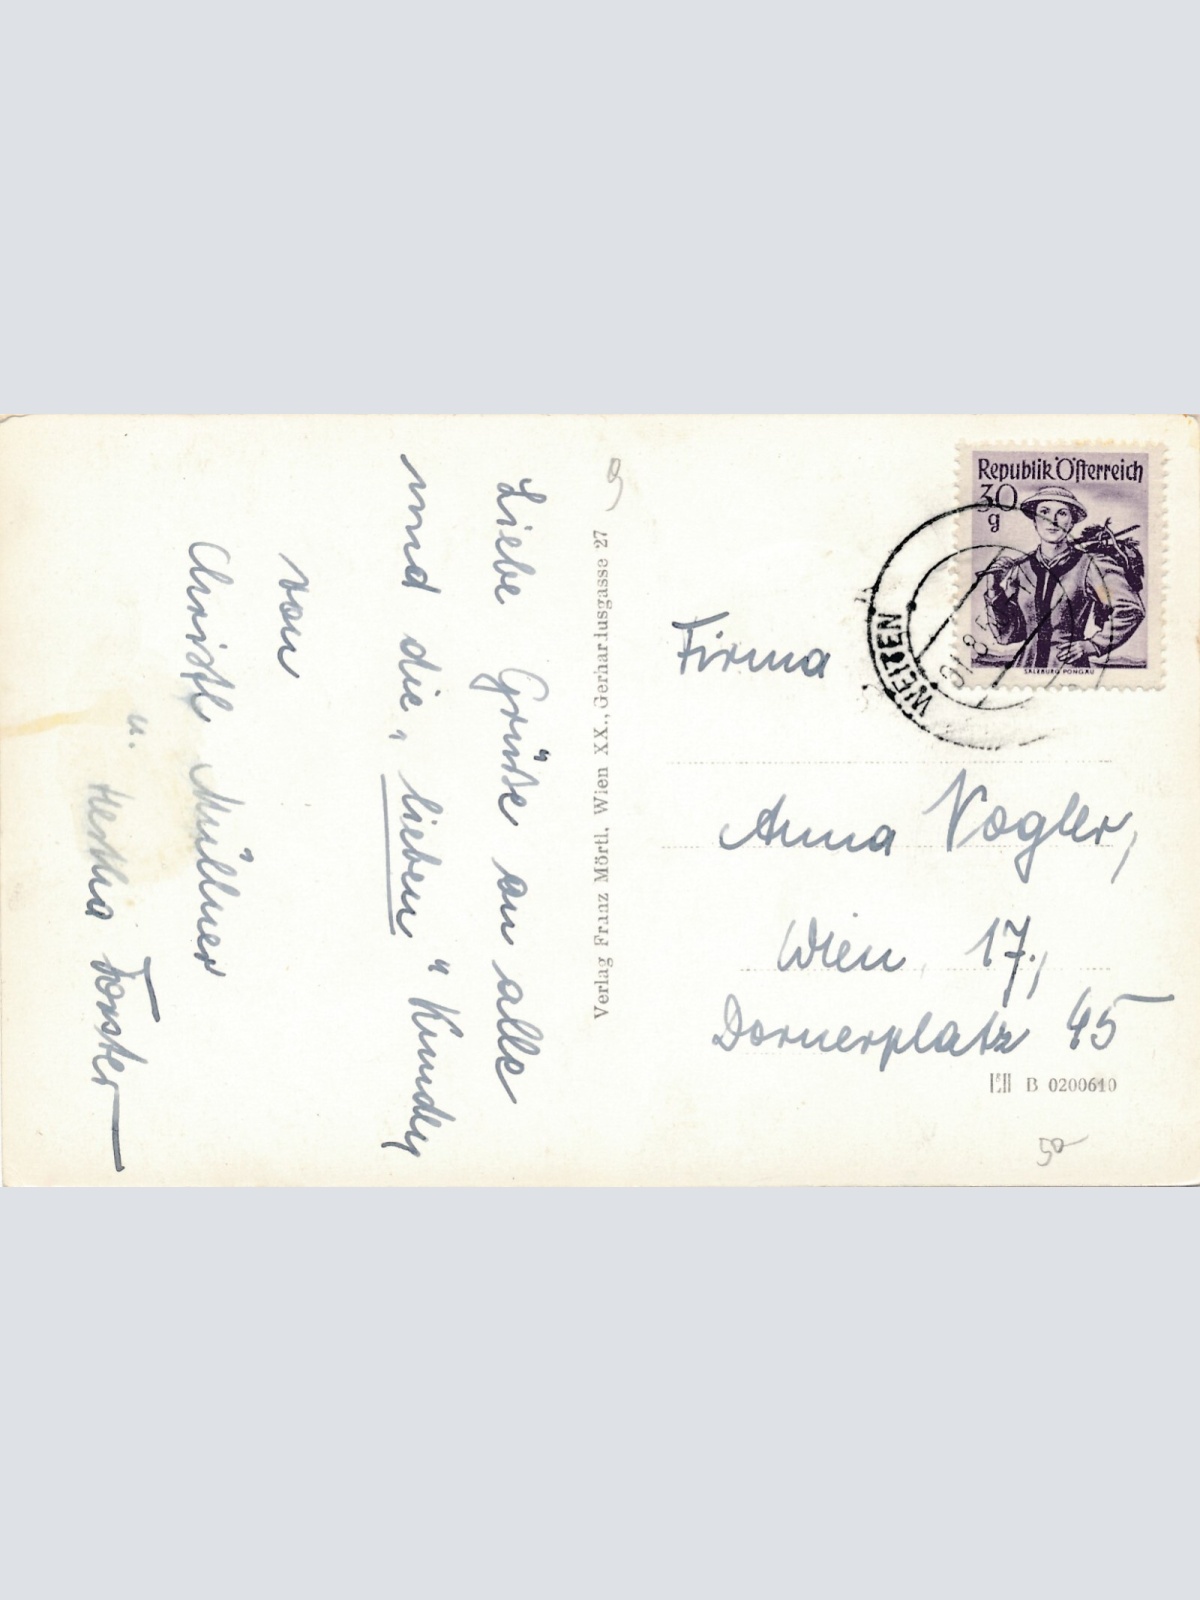 Liebe Grüße an alle
und die „lieben" Kundln
von
Christl Müllner
u. Hertha Forster
Verlag Franz Mörtl, Wien XX., Gerhardusgasse 27
Republik Österreich
30
g
SALZBURG PONGAU
WEIZEN
Firma
Anna Vogler,
Wien 17.,
Dornerplatz 45
B 0200610
50